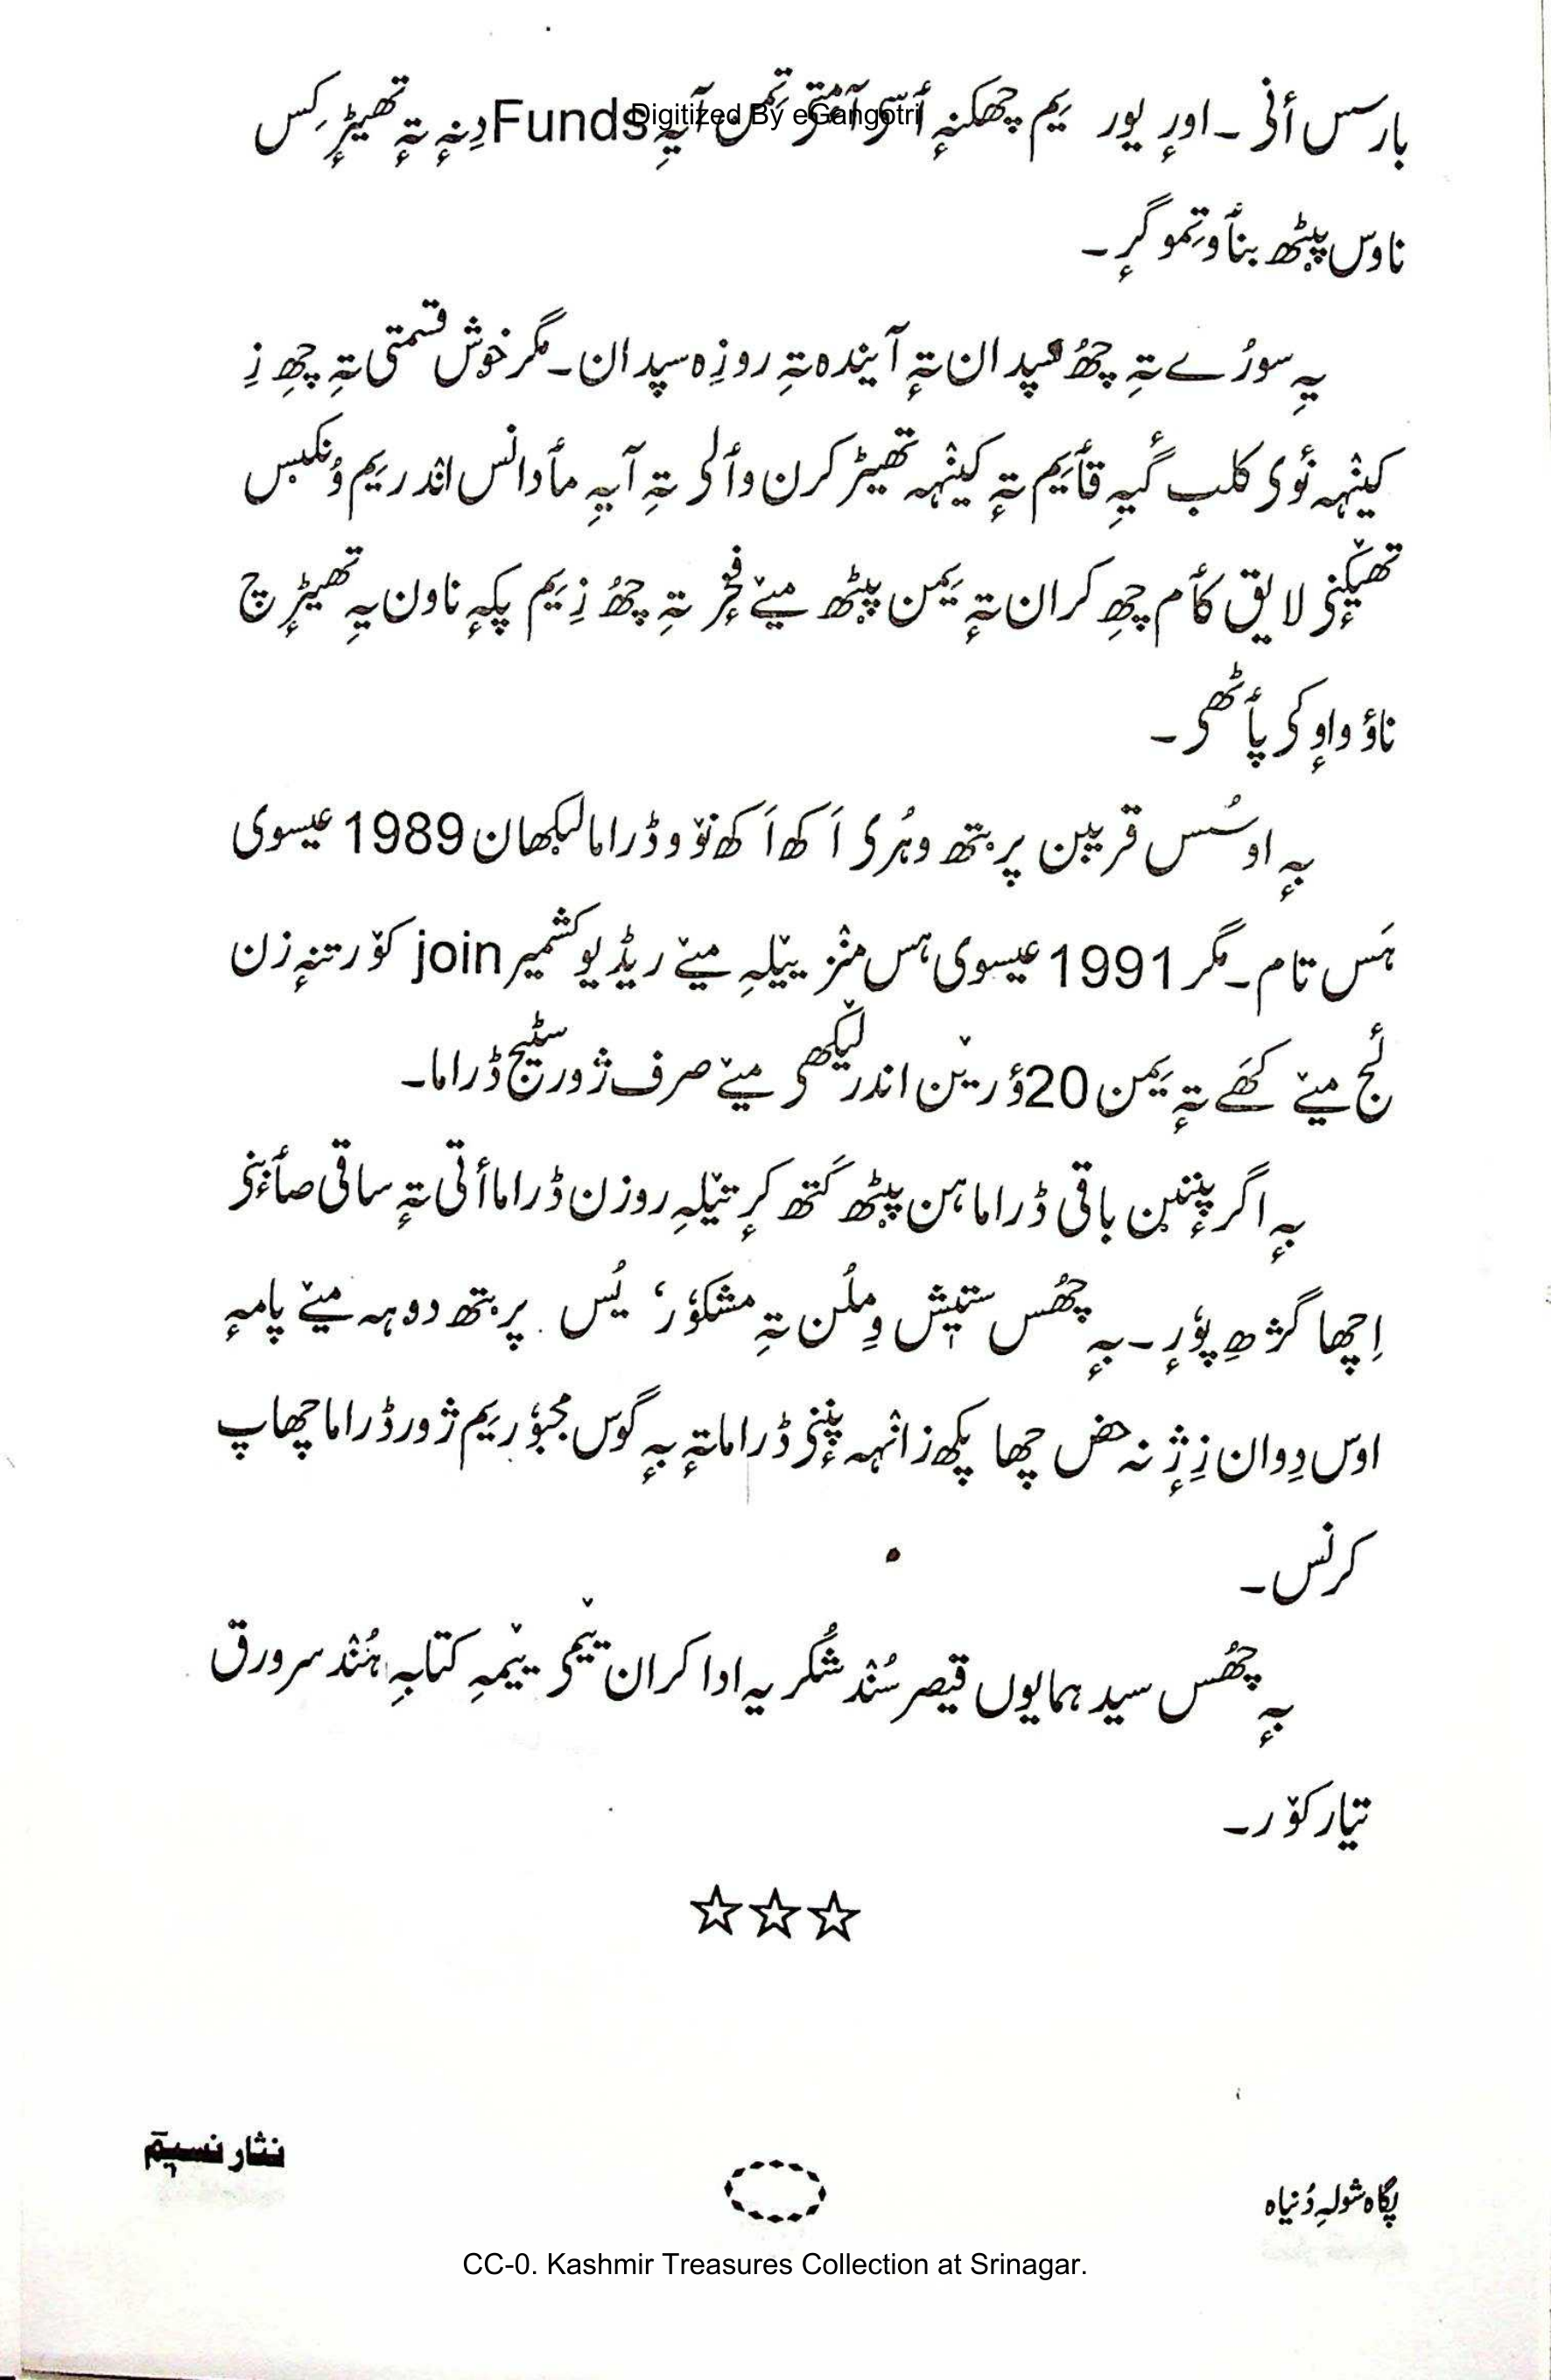 بارسس أنی ۔ اورٕ یور یِم چھکنہٕ أسۍ آمتۍ تِمن آیہِ Funds دِنہٕ تہٕ تھیٹرٕکِس
Digitized By eGangotri
ناوس پیٚٹھ بنٲوتِمو گرٕ ۔
یہِ سورُے تہِ چھُ سپدان تہٕ آیندہ تہِ روزِہ سپدان۔ مگر خوش قسمتی تہِ چھِ زِ
کینٛہہ نٔوی کلب گیہِ قٲیِم تہٕ کینٛہہ تھیٹر کرن وٲلی تہِ آیہِ مٲدانس انٛدر یِم وُنکیس
تھیٚکٕنی لایق کٲم چھِ کران تہٕ یِمن پیٚٹھ میٚے فخٕر تہِ چھُ زِ یِم پکہٕ ناون یہِ تھیٹرٕچ
ناؤ واوٕکی پٲٹھی ۔
بہٕ اوسُس قریبن پریتھ وہُری اَکھ اَکھ نوٚو ڈراما لیکھان 1989 عیسوی
ہَس تام۔ مگر 1991 عیسوی ہس منٛز ییٚلہِ میٚے ریڈیو کشمیر join کوٚر تنہٕ زن
لٔج میٚے کھَے تہٕ یِمن 20 ؤریَن اندر لیٚکھی میٚے صرف ژور سٹیج ڈراما۔
بہٕ اگر پنٕنیٚن باقی ڈراماہن پیٚٹھ کَتھ کرٕ تیٚلہِ روزن ڈراما أتی تہٕ ساقی صٲبنی
اِچھا گژھِ پوٗرٕ ۔ بہٕ چھُس ستیش وِملُن تہِ مشکوٗر، یُس پریتھ دوہہ میٚے پامہٕ
اوس دِوان زِ ژٕ نہ حض چھا پکھ زانٛہہ پنٕنی ڈراما تہٕ بہٕ گوس مجبوٗر یِم ژور ڈراما چھاپ
کرنس۔
بہٕ چھُس سید ہمایوں قیصر سُنٛد شُکریہ ادا کران ییٚمی ییٚمہِ کتابہِ ہُنٛد سرورق
تیار کوٚر۔
☆☆☆
نثار نسیم
پگاہ شولہِ دُنیاہ
CC-0. Kashmir Treasures Collection at Srinagar.